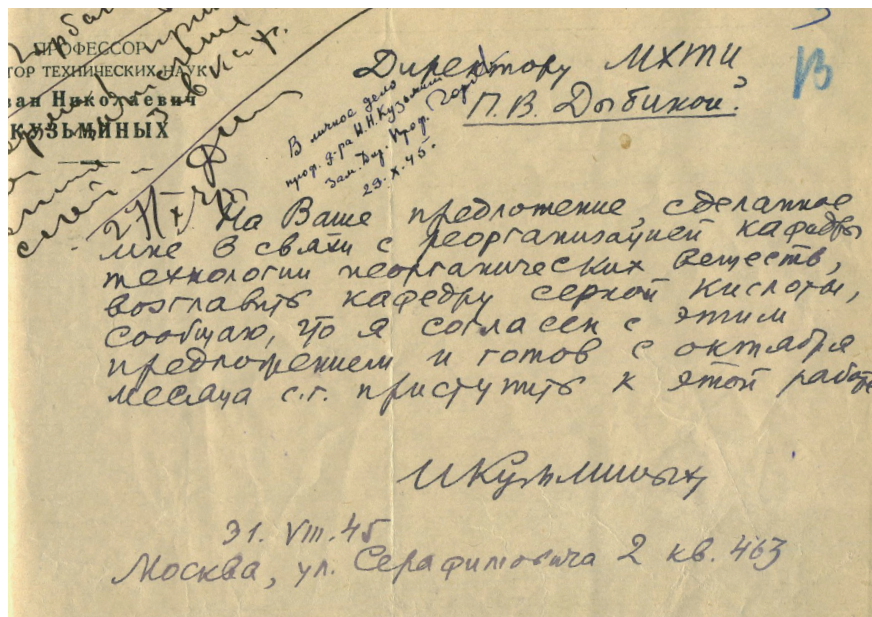 ПРОФЕССОР
ТОР ТЕХНИЧЕСКИХ НАУК
ван Николаевич
КУЗЬМИНЫХ
Директору МХТИ
П. В. Дыбиной.
В личное дело
проф. д-ра И.Н. Кузьмин
Зам. Дир. Проф.
29.X.45.
На Ваше предложение, сделанное
мне в связи с реорганизацией кафедры
технологии неорганических веществ,
возглавить кафедру серной кислоты,
сообщаю, что я согласен с этим
предложением и готов с октября
месяца с.г. приступить к этой работе
ИКузьминых
31. VIII. 45
Москва, ул. Серафимовича 2 кв. 463